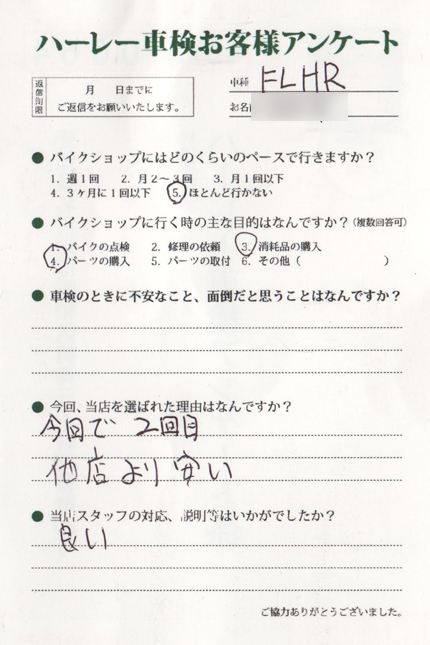 ハーレー車検お客様アンケート
返信期限
月　日までに
ご返信をお願いいたします。
車種 FLHR
お名前
● バイクショップにはどのくらいのペースで行きますか？
1. 週1回　2. 月2～3回　3. 月1回以下
4. 3ヶ月に1回以下　5. ほとんど行かない
● バイクショップに行く時の主な目的はなんですか？（複数回答可）
1. バイクの点検　2. 修理の依頼　3. 消耗品の購入
4. パーツの購入　5. パーツの取付　6. その他（　　　　　）
● 車検のときに不安なこと、面倒だと思うことはなんですか？
● 今回、当店を選ばれた理由はなんですか？
今回で 2回目
他店より安い
● 当店スタッフの対応、説明等はいかがでしたか？
良い
ご協力ありがとうございました。